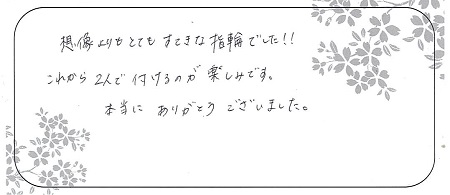 想像よりもとてもすてきな指輪でした!!
これから2人で付けるのが楽しみです。
本当にありがとうございました。